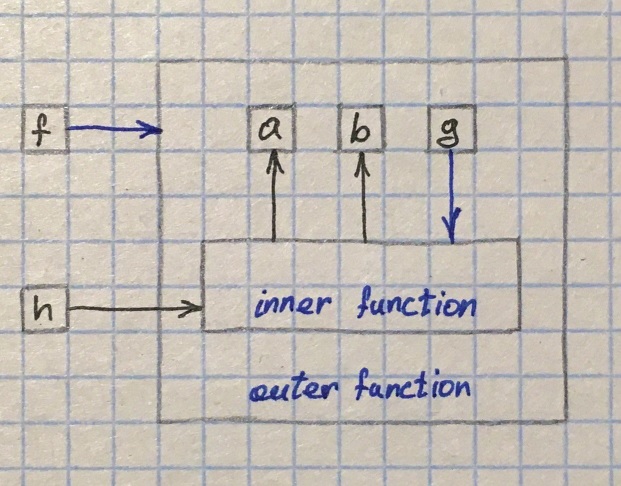 f
a b g
h
inner function
outer function